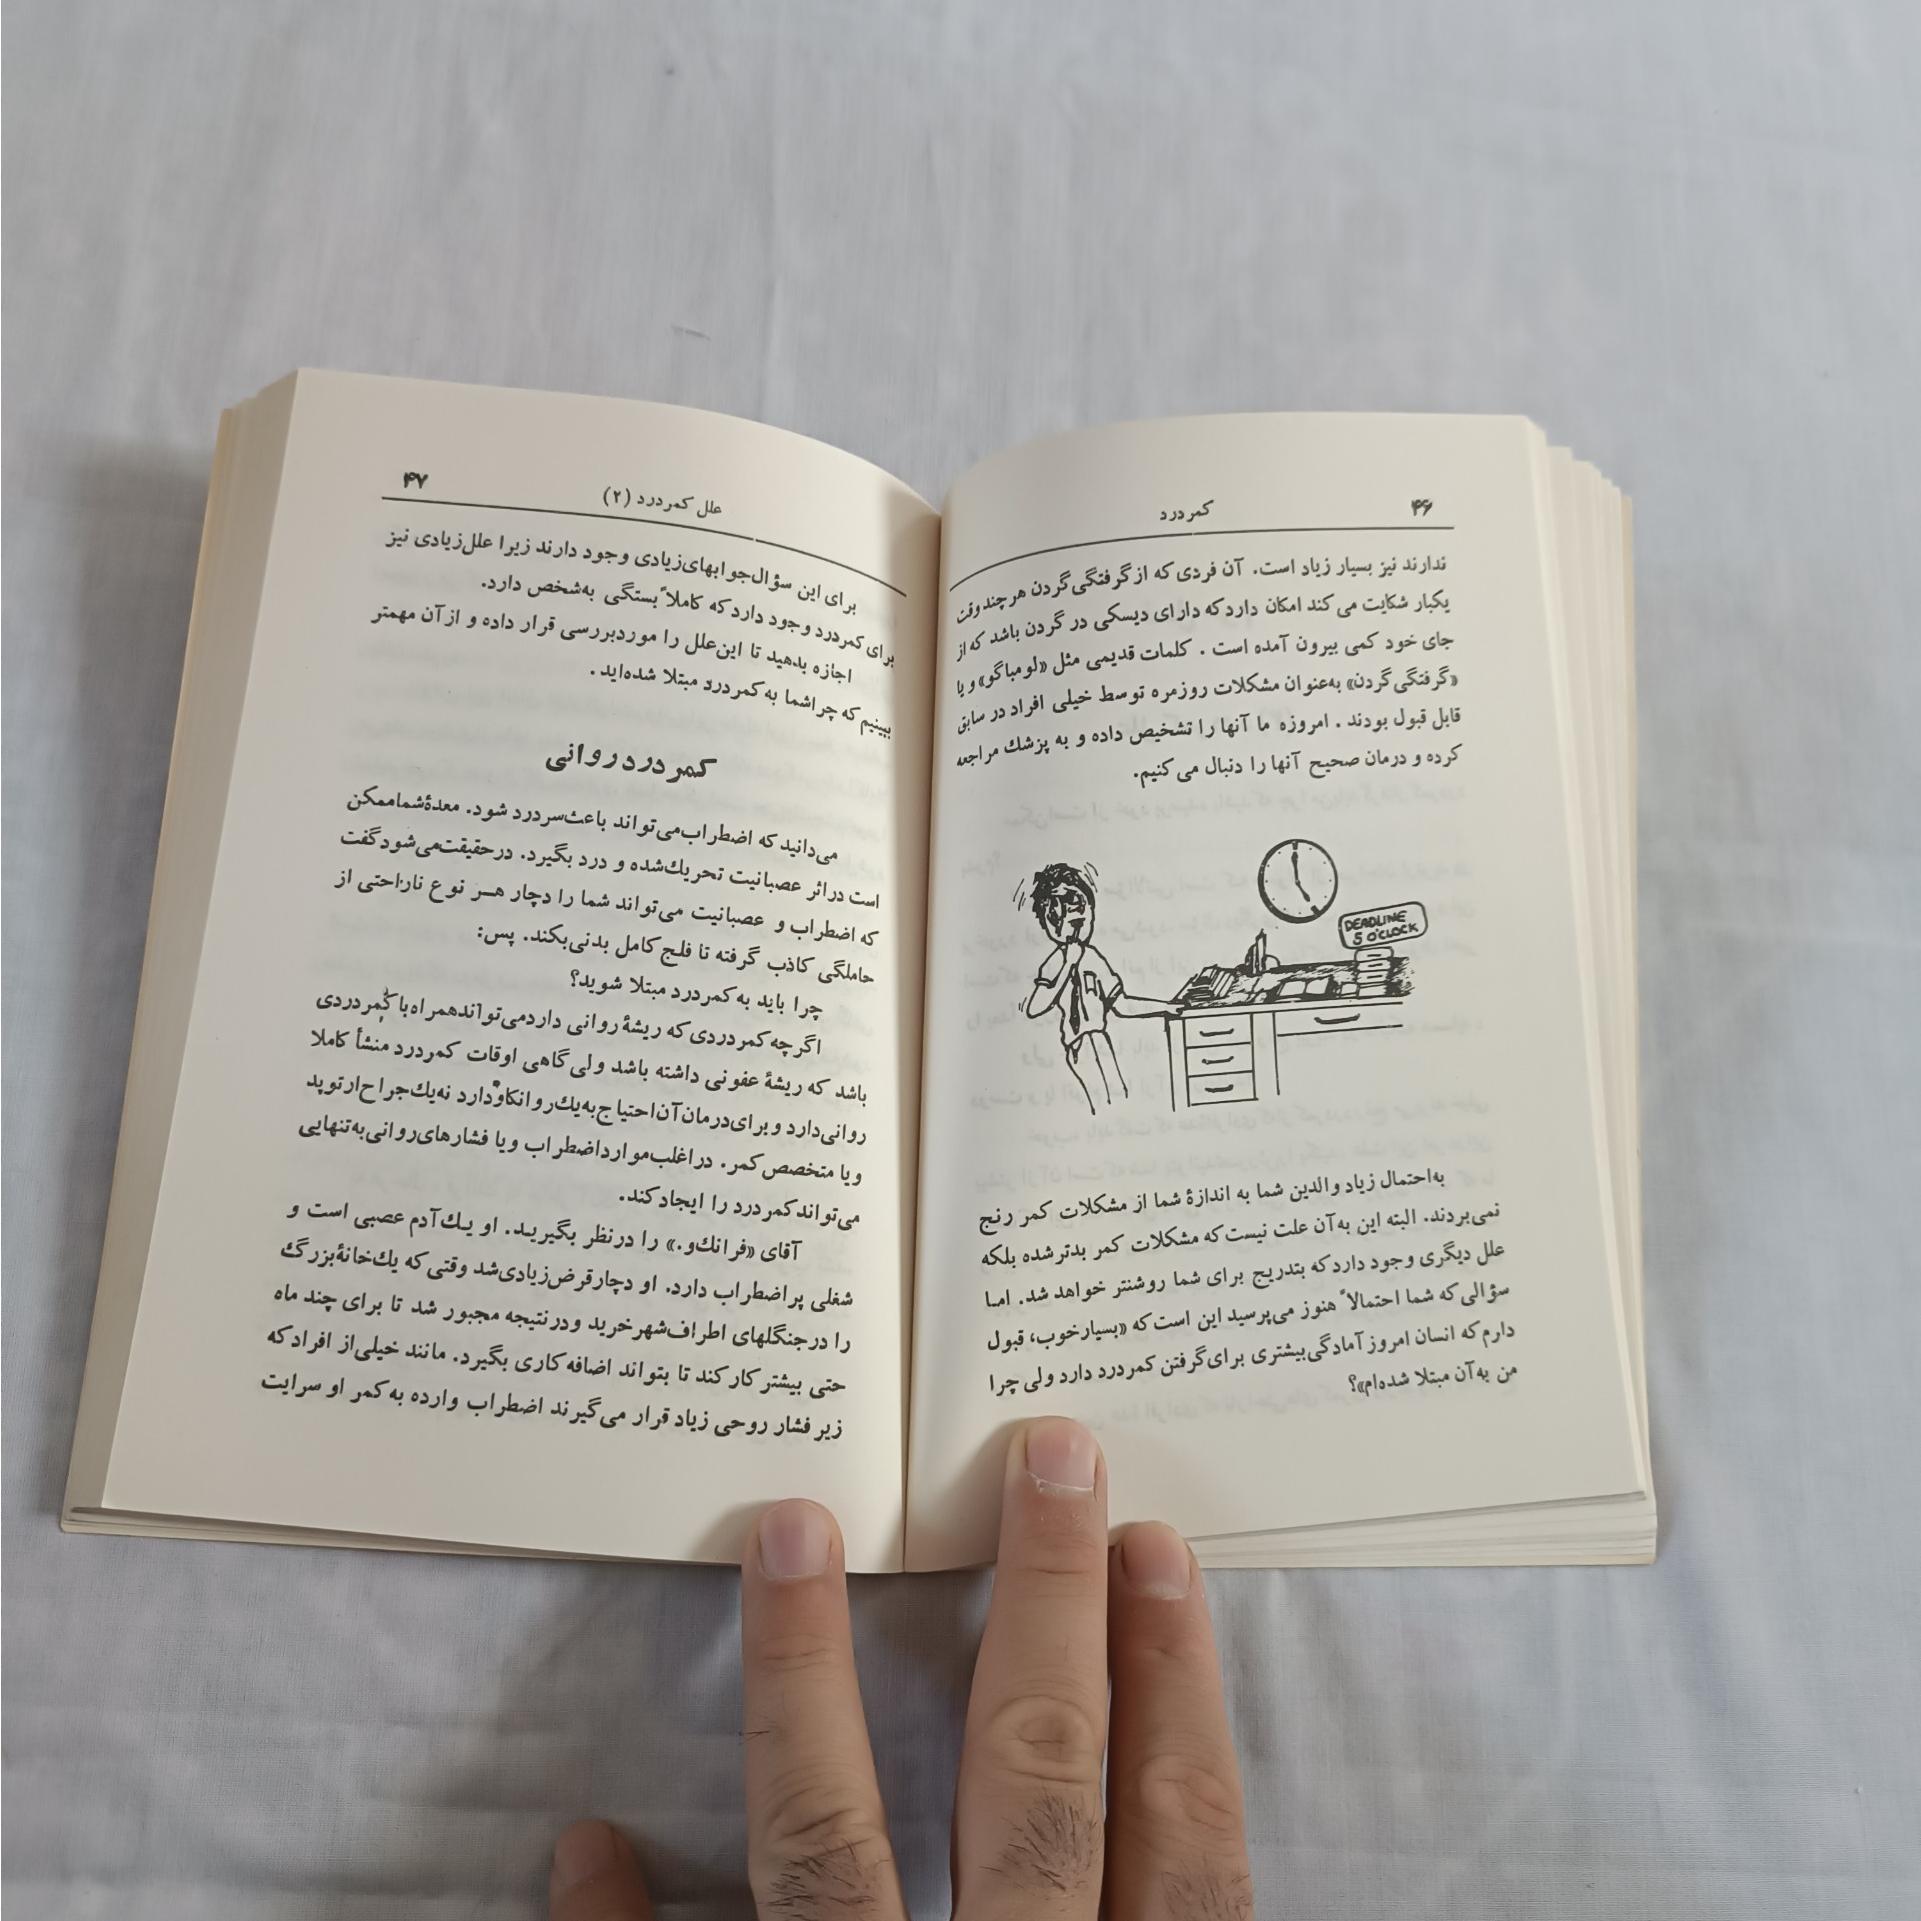 ۴۶
کمردرد
ندارند نیز بسیار زیاد است. آن فردی که از گرفتگی گردن هر چند وقت
یکبار شکایت می کند امکان دارد که دارای دیسکی در گردن باشد که از
جای خود کمی بیرون آمده است. کلمات قدیمی مثل «لومباگو» و یا
«گرفتگی گردن» به‌عنوان مشکلات روزمره توسط خیلی افراد در سابق
قابل قبول بودند. امروزه ما آنها را تشخیص داده و به پزشك مراجعه
کرده و درمان صحیح آنها را دنبال می کنیم.
DEADLINE
5 O'CLOCK
به‌احتمال زیاد والدین شما به اندازهٔ شما از مشکلات کمر رنج
نمی‌بردند. البته این به‌آن علت نیست که مشکلات کمر بدتر شده بلکه
علل دیگری وجود دارد که بتدریج برای شما روشنتر خواهد شد. اما
سؤالی که شما احتمالاً هنوز می‌پرسید این است که «بسیارخوب، قبول
دارم که انسان امروز آمادگی بیشتری برای گرفتن کمردرد دارد ولی چرا
من به‌آن مبتلا شده‌ام»؟
علل کمردرد (۲)
۴۷
برای این سؤال جوابهای زیادی وجود دارند زیرا علل زیادی نیز
برای کمردرد وجود دارد که کاملاً بستگی به‌شخص دارد.
اجازه بدهید تا این‌علل را مورد بررسی قرار داده و از آن مهمتر
ببینیم که چرا شما به کمردرد مبتلا شده‌اید.
کمردرد روانی
می‌دانید که اضطراب می‌تواند باعث سردرد شود. معدهٔ شما ممکن
است در اثر عصبانیت تحریك شده و درد بگیرد. در حقیقت می‌شود گفت
که اضطراب و عصبانیت می‌تواند شما را دچار هر نوع ناراحتی از
حاملگی کاذب گرفته تا فلج کامل بدنی بکند. پس:
چرا باید به کمردرد مبتلا شوید؟
اگرچه کمردردی که ریشهٔ روانی دارد می‌تواند همراه با کمردردی
باشد که ریشهٔ عفونی داشته باشد ولی گاهی اوقات کمردرد منشأ کاملا
روانی دارد و برای درمان آن احتیاج به یك روانکاو دارد نه یك جراح ارتوپد
و یا متخصص کمر. در اغلب موارد اضطراب و یا فشارهای روانی به‌تنهایی
می‌تواند کمردرد را ایجاد کند.
آقای «فرانك و.» را درنظر بگیرید. او یك آدم عصبی است و
شغلی پر اضطراب دارد. او دچار قرض زیادی شد وقتی که یك خانهٔ بزرگ
را در جنگلهای اطراف شهر خرید و در نتیجه مجبور شد تا برای چند ماه
حتی بیشتر کار کند تا بتواند اضافه کاری بگیرد. مانند خیلی از افراد که
زیر فشار روحی زیاد قرار می‌گیرند اضطراب وارده به کمر او سرایت